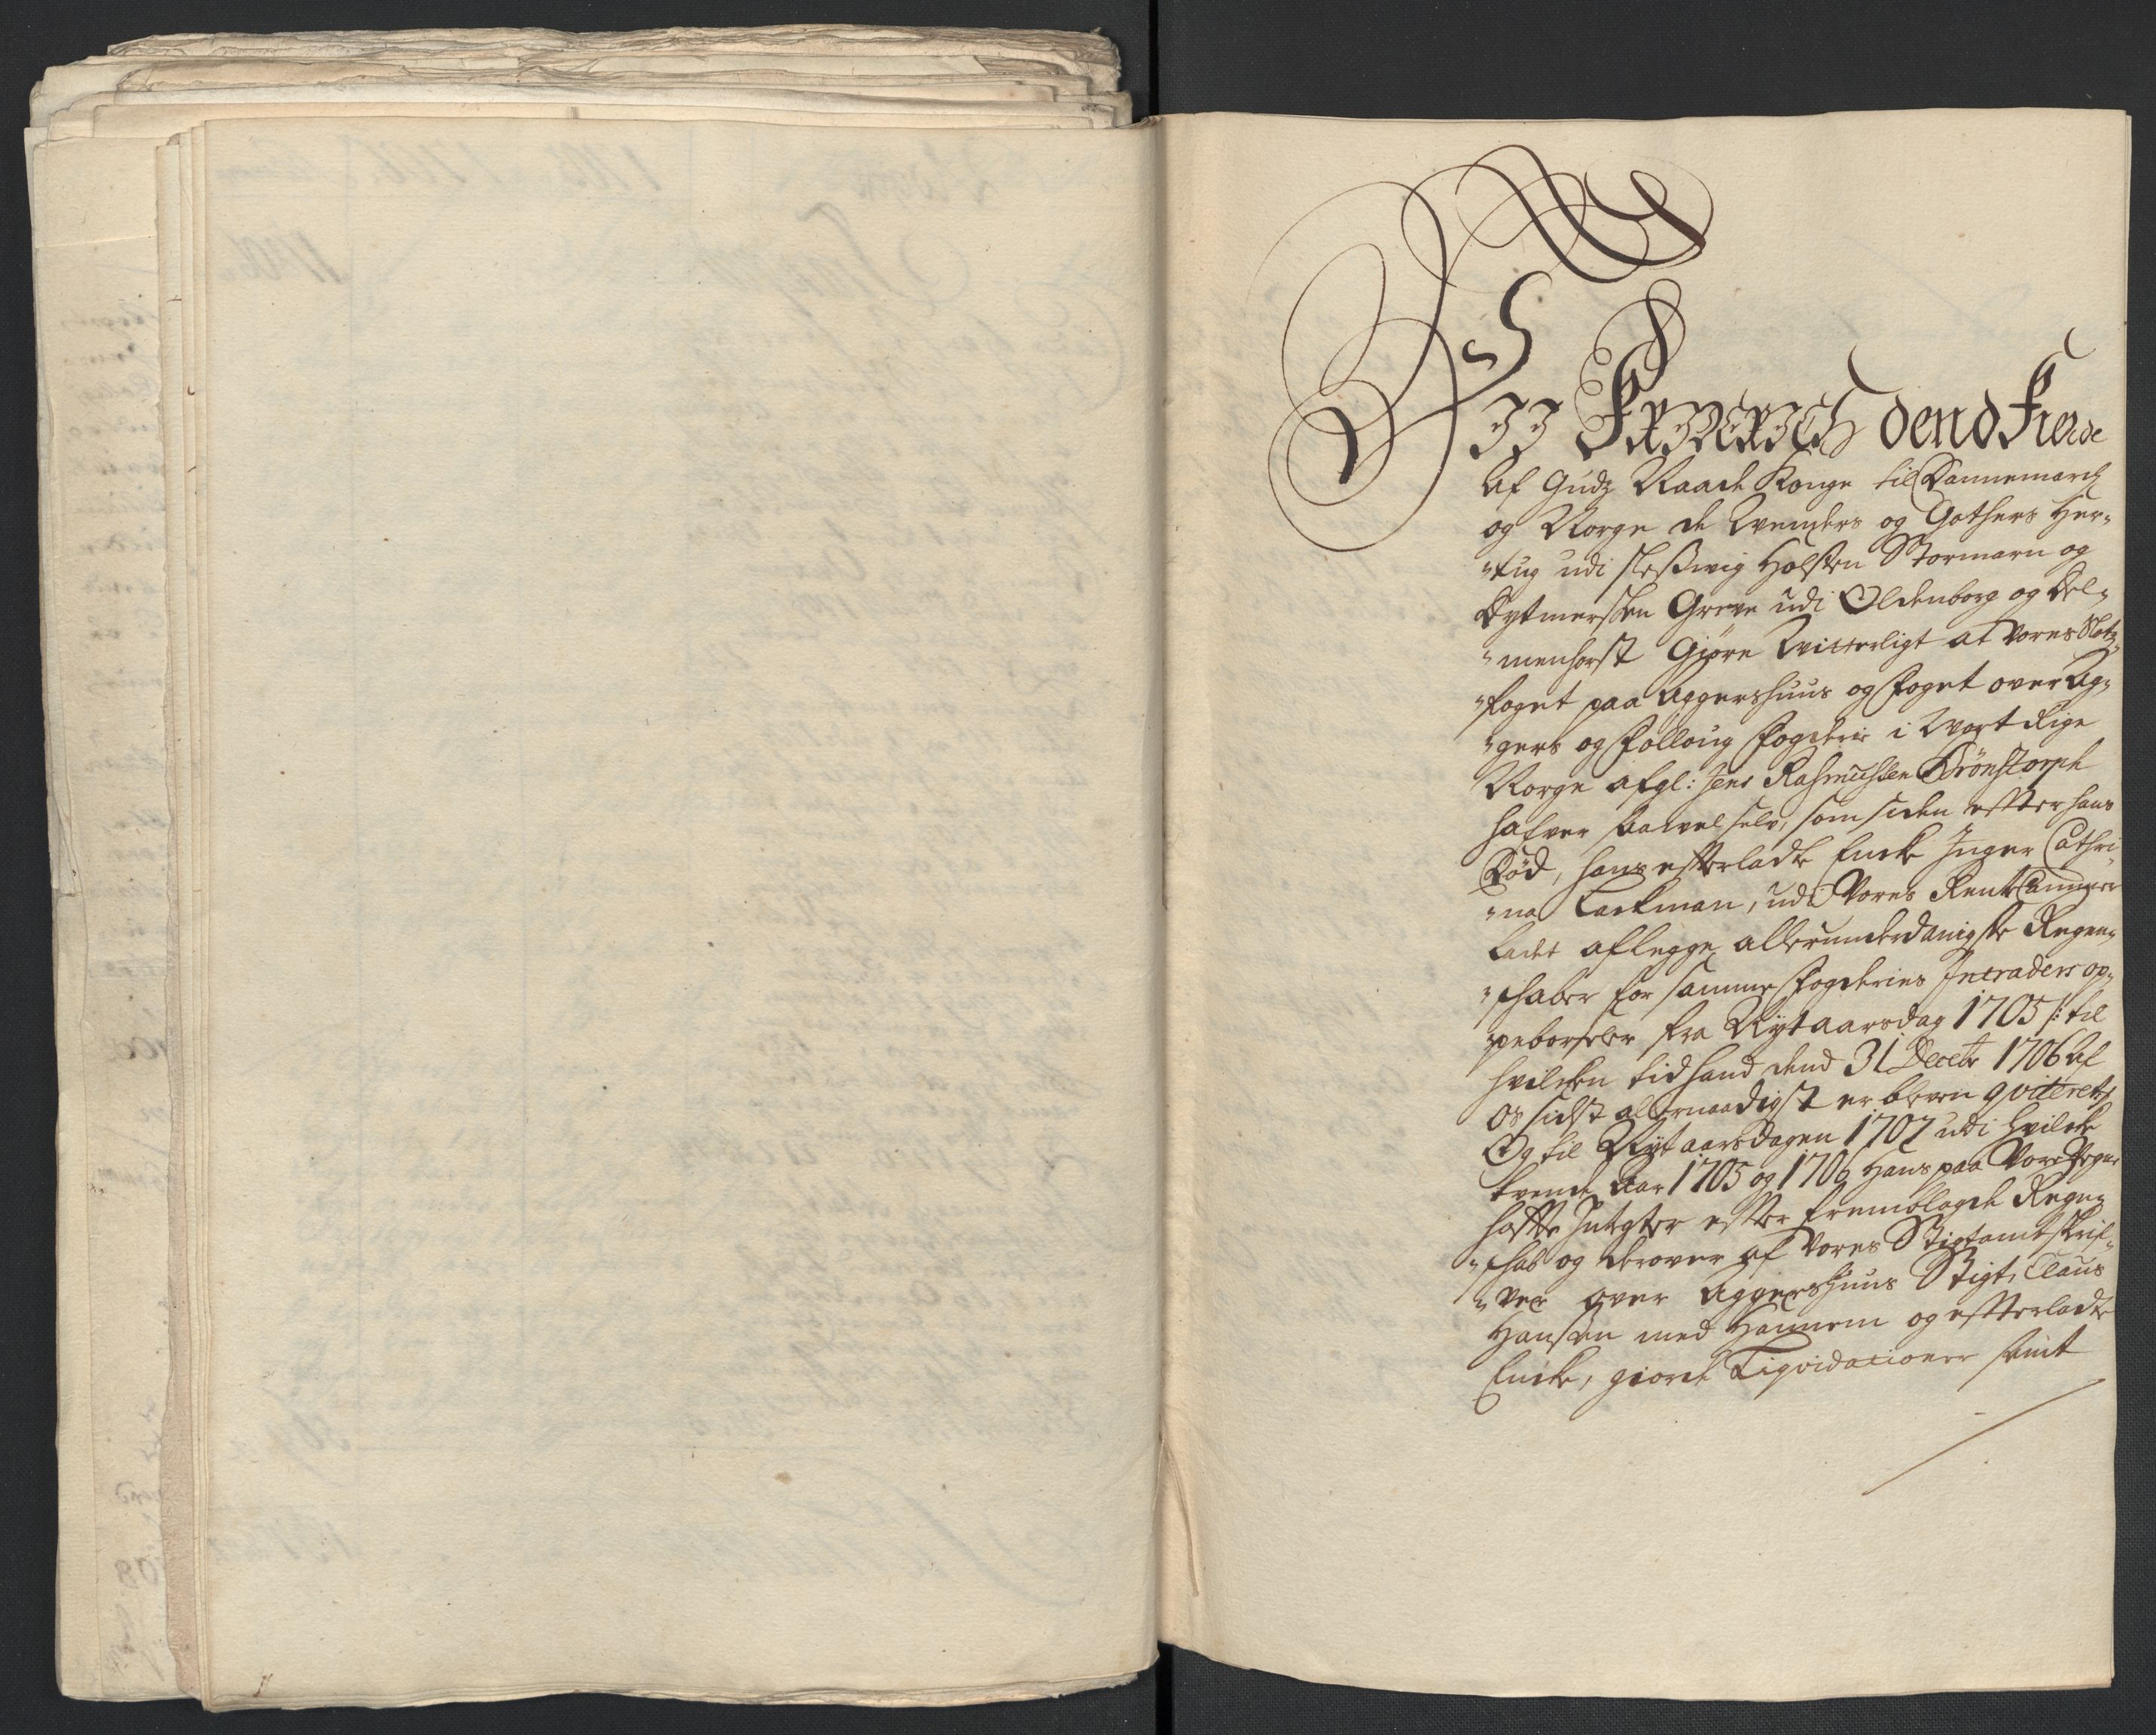 Wii Friderich dend Fierde
Af Gudz Naade Konge til Dannemarch
og Norge de Wenders og Gothers Her-
-tug udi Sleßwig Holsten Stormarn og
Dytmersken Greve udi Oldenborg og Del-
-menhorst Giøre Witterligt at Vores Slotz-
-foget paa Aggershuus og foget over Ag-
-gers og Folloug fogderie i Wort Rige
Norge afgl: Jens Rasmussen Brønstorph
hafver saavel selv, som siden efter hans
Død, hans efterladte Encke Inger Cathri-
-na Lackman, udi Vores Rente Cammer
Ladet aflegge allerunderdanigste Regen-
-schaber for samme fogderies Intraders op-
peborseler fra Nytaarsdag 1705 /: til
hvilcken tid hand dend 31 Decebr 1706 af
os sidst allernaadigst er bleven qviteret :/
Og til Nytaarsdagen 1707 udi hvilcke
tvende Aar 1705 og 1706 Hans paa Vore Vegne
hafte Indtgter efter fremblagde Regen-
-schab og derover af Vores Stigtamtskrif-
-ver over Aggershuus Stigt, Claus
Hansen med Hannem og efterladte
Encke, giorde Liqvidationer samt